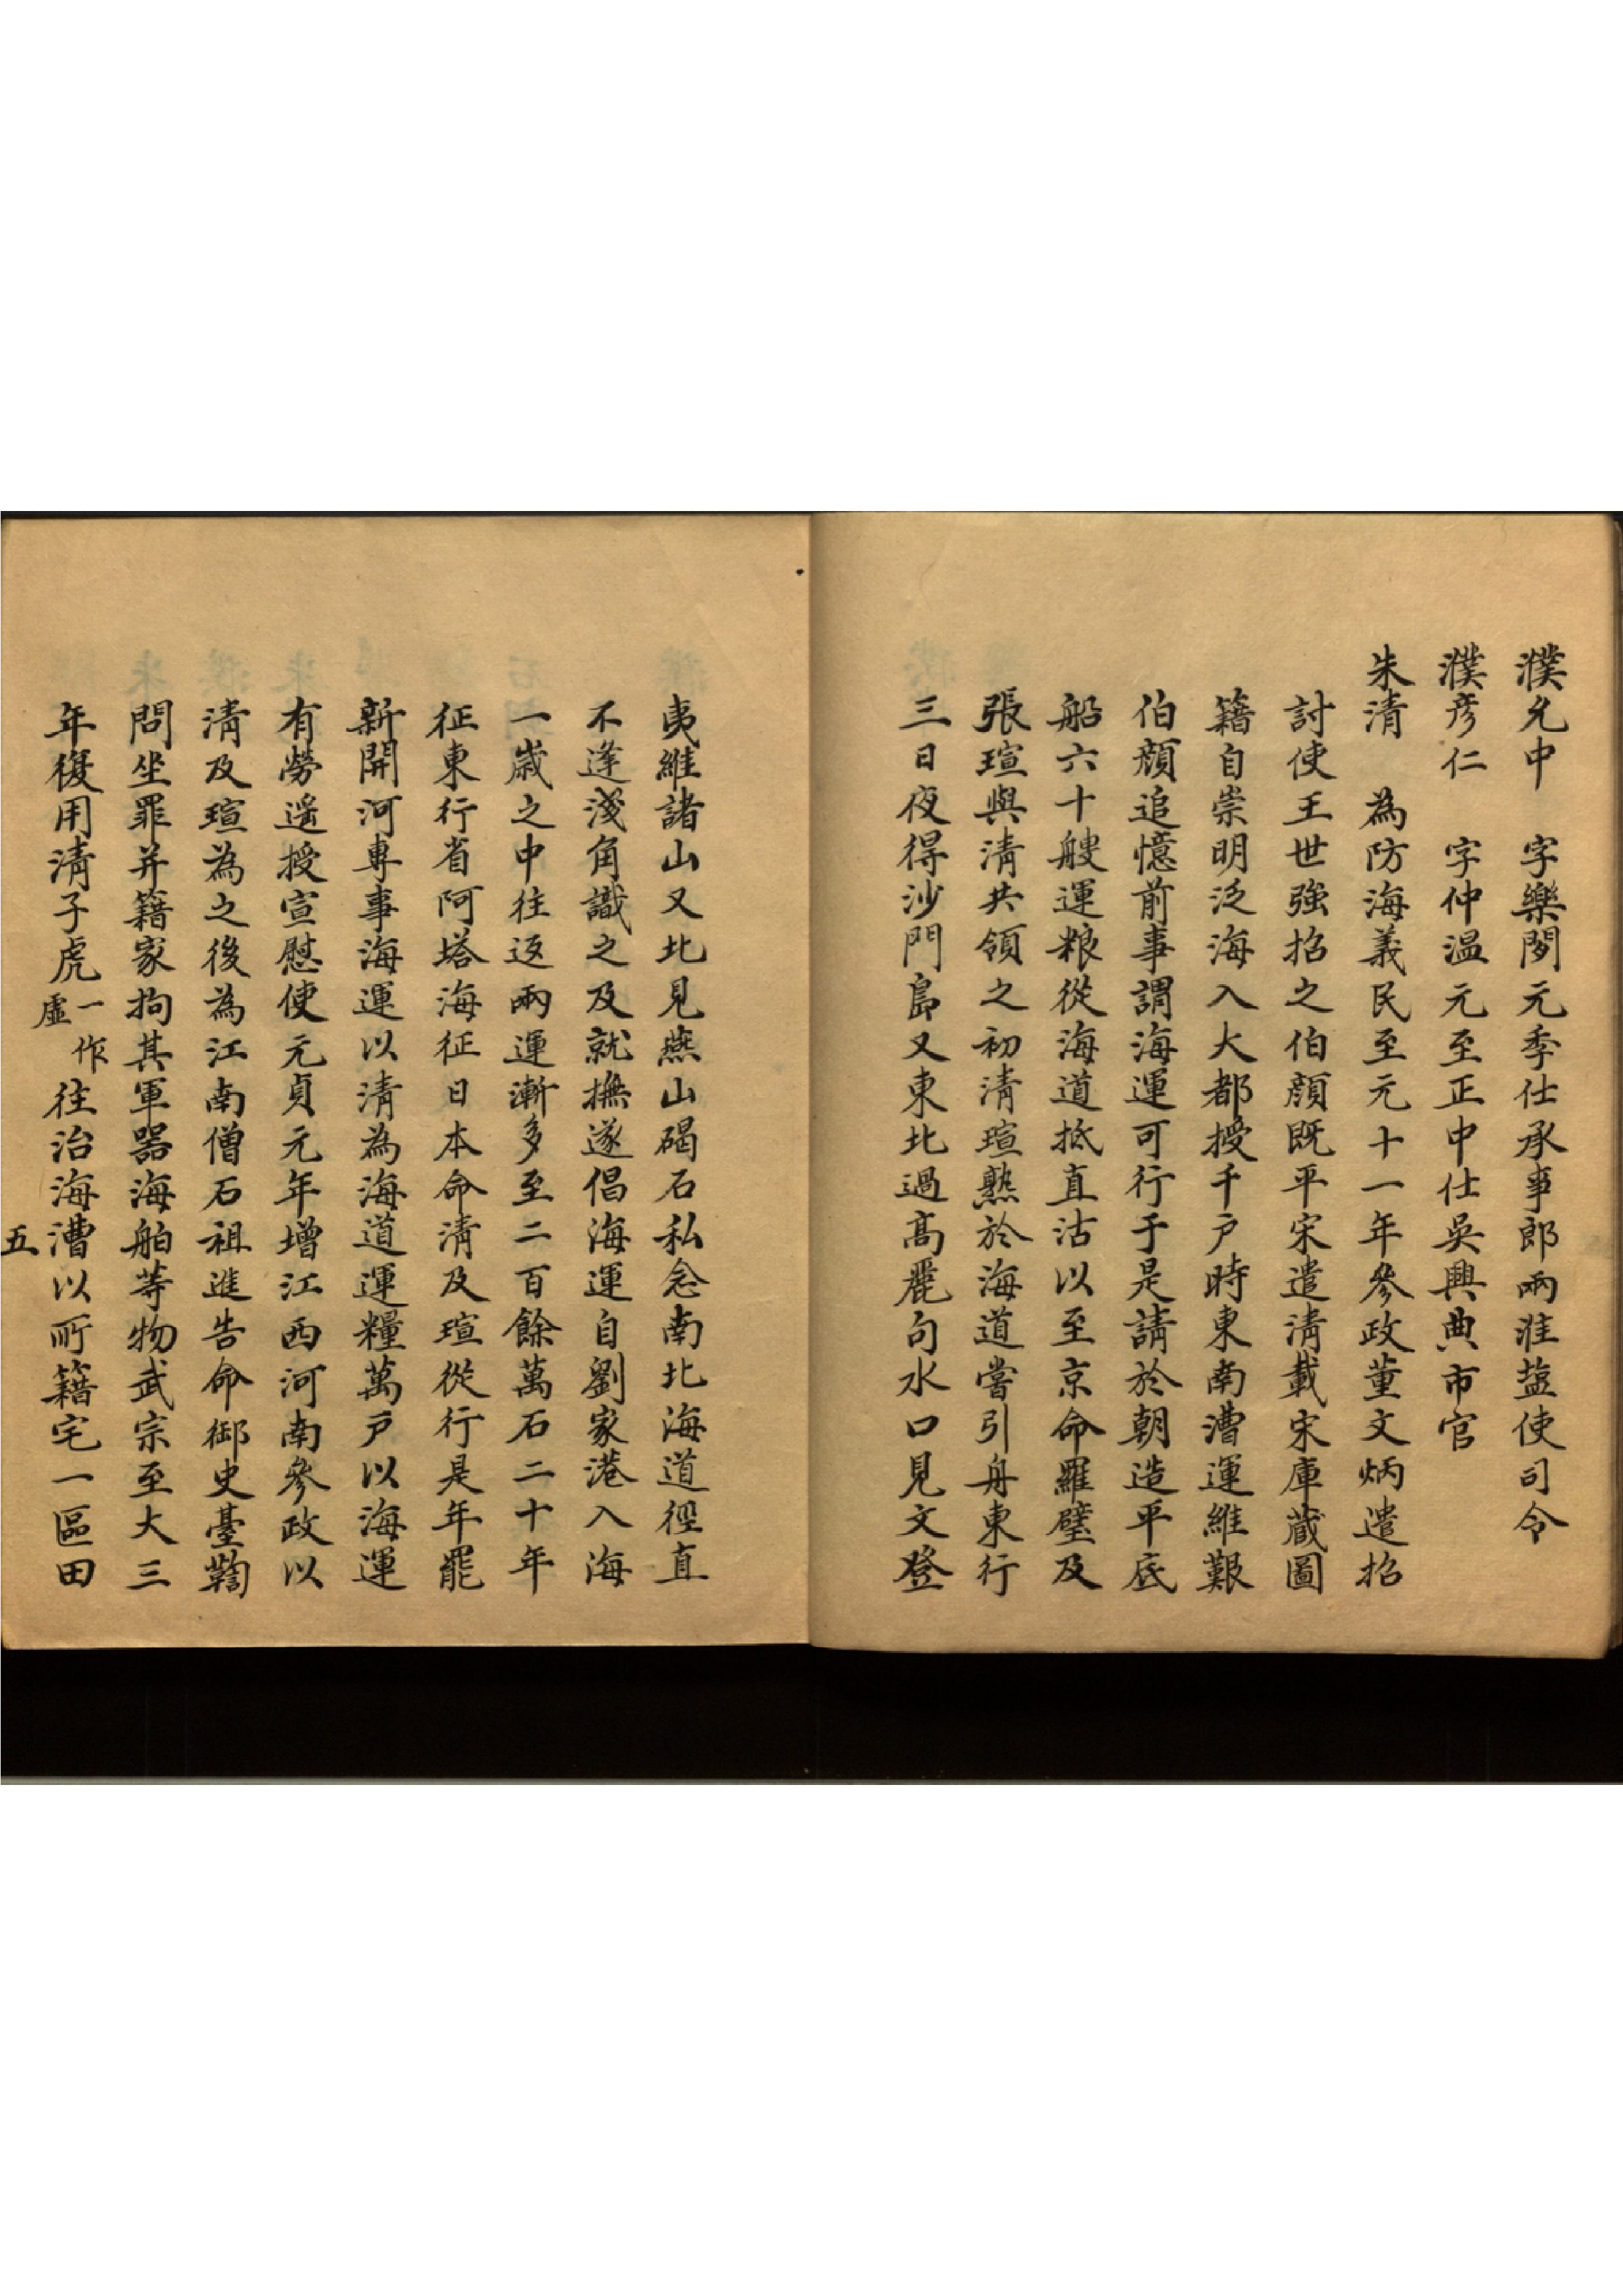 濮允中　字樂閒元季仕承事郎兩淮盐使司令
濮彥仁　字仲温元至正中仕吳興典市官
朱清　為防海義民至元十一年參政董文炳遣招
討使王世強招之伯顔既平宋遣清載宋庫蔵圖
籍自崇明泛海入大都授千戸時東南漕運維艱
伯顔追憶前事謂海運可行于是請於朝造平底
船六十艘運粮從海道抵直沽以至京命羅璧及
張瑄與清共領之初清瑄熟於海道嘗引舟東行
三日夜得沙門島又東北過髙麗句水口見文登
夷維諸山又北見燕山碣石私念南北海道徑直
不逢淺角識之及就撫遂倡海運自劉家港入海
一歳之中往返兩運漸多至二百餘萬石二十年
征東行省阿塔海征日本命清及瑄從行是年罷
新開河專事海運以清為海道運糧萬戸以海運
有勞遙授宣慰使元貞元年增江西河南參政以
清及瑄為之後為江南僧石祖進告命御史臺鞫
問坐罪并籍家拘其軍器海舶等物武宗至大三
年復用清子虎一作虛往治海漕以所籍宅一區田
五